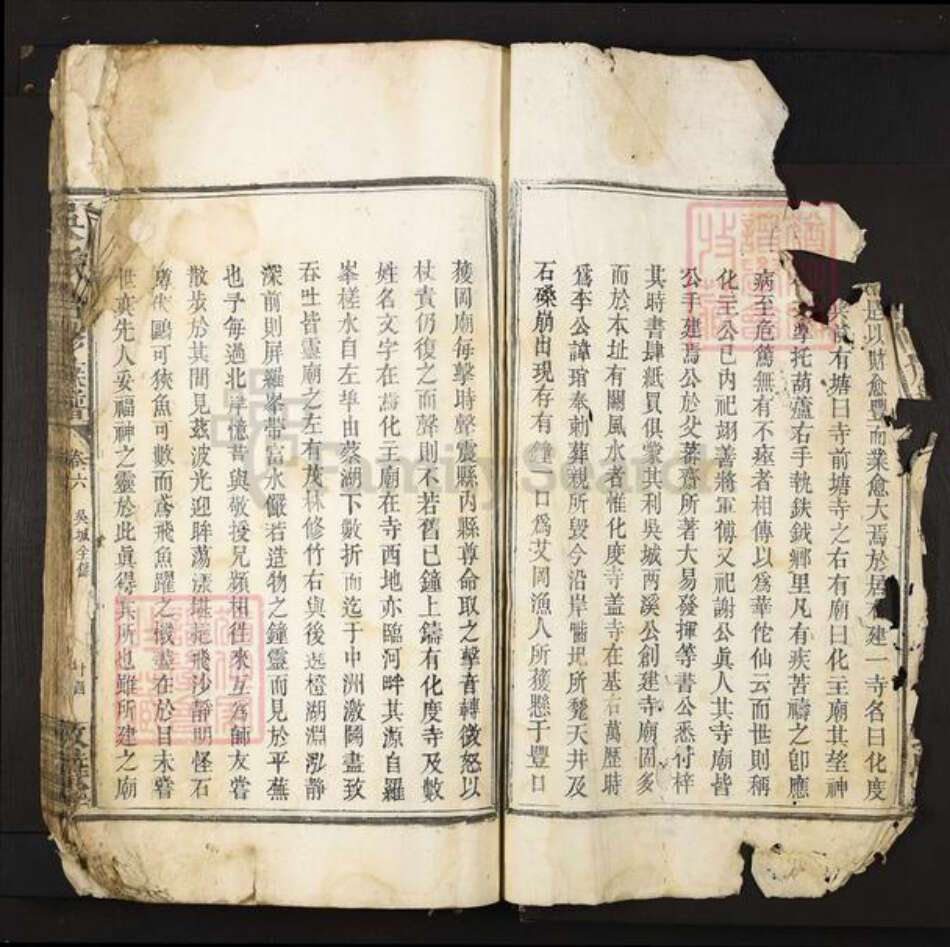 足以財愈豐而業愈大焉於居右建一寺名曰化度
有塘曰寺前塘寺之右有廟曰化主廟其塑神
尊托葫蘆右手執鈇鉞鄉里凡有疾苦禱之卽應
病至危篤無有不痊者相傳以爲華佗仙云而世則稱
化主公已內祀翊善將軍傅又祀謝公眞人其寺廟皆
公手建焉公於父葬齋所著大易發揮等書公悉付梓
其時書肆紙買俱蒙其利吳城兩溪公創建寺廟固多
而於本址有關風水者惟化度寺蓋寺在基右萬歷時
爲李公諱琯奉勅葬親所毀今沿岸嚙圯所甃天井及
石磉崩出現存有鐘一口爲艾岡漁人所獲懸于豐口
薐岡廟每擊時聲震縣內縣尊命取之擊音轉微怒以
杖責仍復之而聲則不若舊已鐘上鑄有化度寺及數
姓名文字在焉化主廟在寺西地亦臨河畔其源自羅
峯槎水自左埠由蔡湖下數折而迄于中洲激鬪盡致
吞吐皆靈廟之左有茂林修竹右與後遶橙湖淵泓靜
深前則屏羅峯帶富水儼若造物之鐘靈而見於平蕪
也予每過北岸憶昔與敬授兄頻相徃來互爲師友嘗
散步於其間見茲波光迎眸蕩漾堤飛沙靜明怪石
鷗可狹魚可數而鳶飛魚躍之機盡在於目未嘗
世眞先人妥福神之靈於此眞得其所也雖所建之廟
卷六
吳城全舊